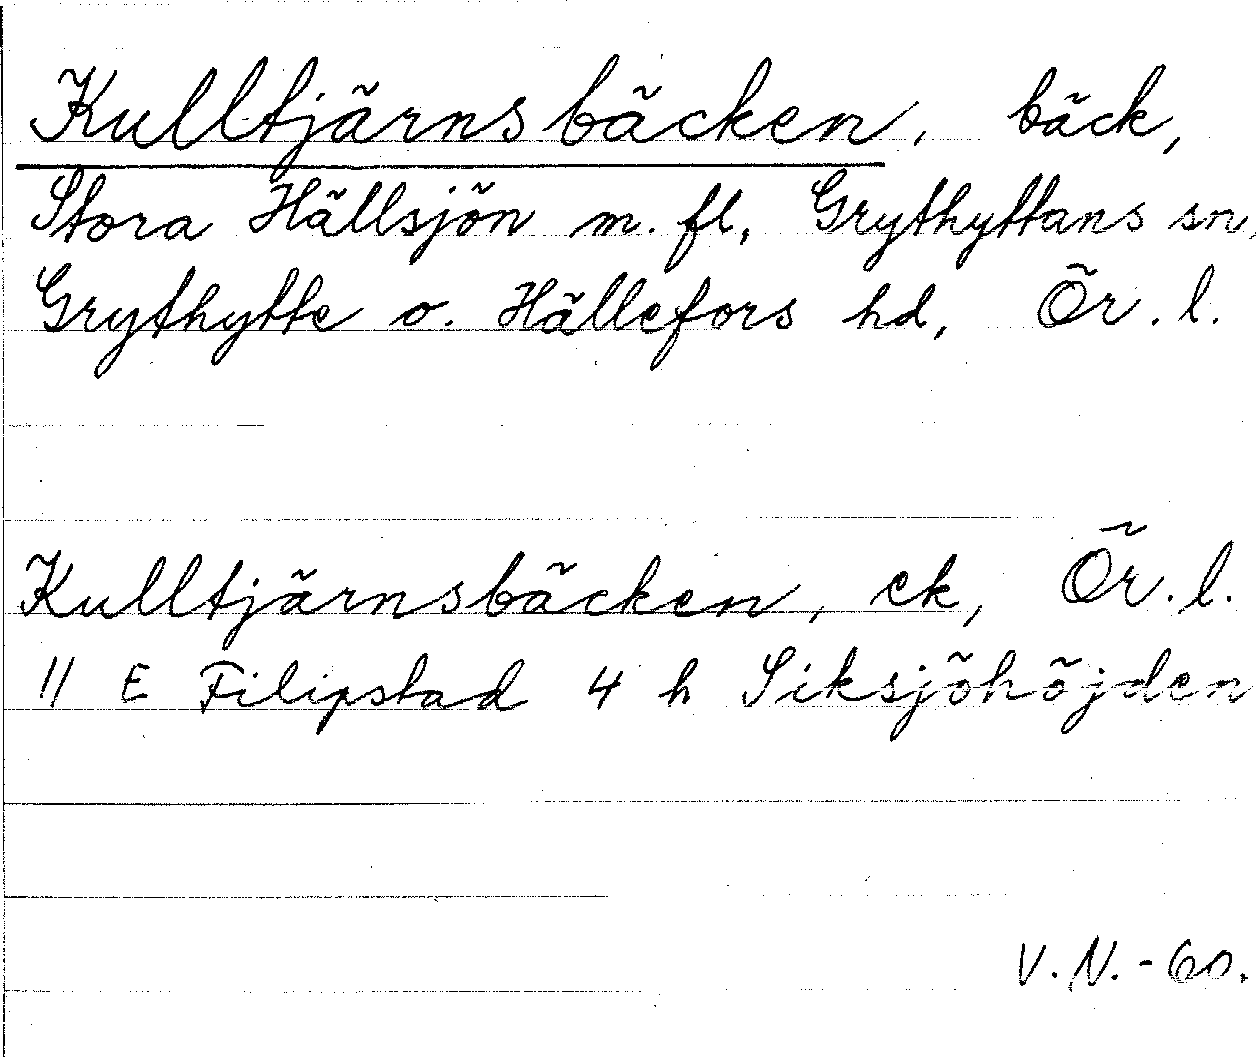 Kulltjärnsbäcken, bäck,
Stora Hällsjön m. fl, Grythyttans sn,
Grythytte o. Hällefors hd, Ör. l.
Kulltjärnsbäcken, ek, Ör. l.
11 E Filipstad 4 h Siksjöhöjden
V. N. - 60.